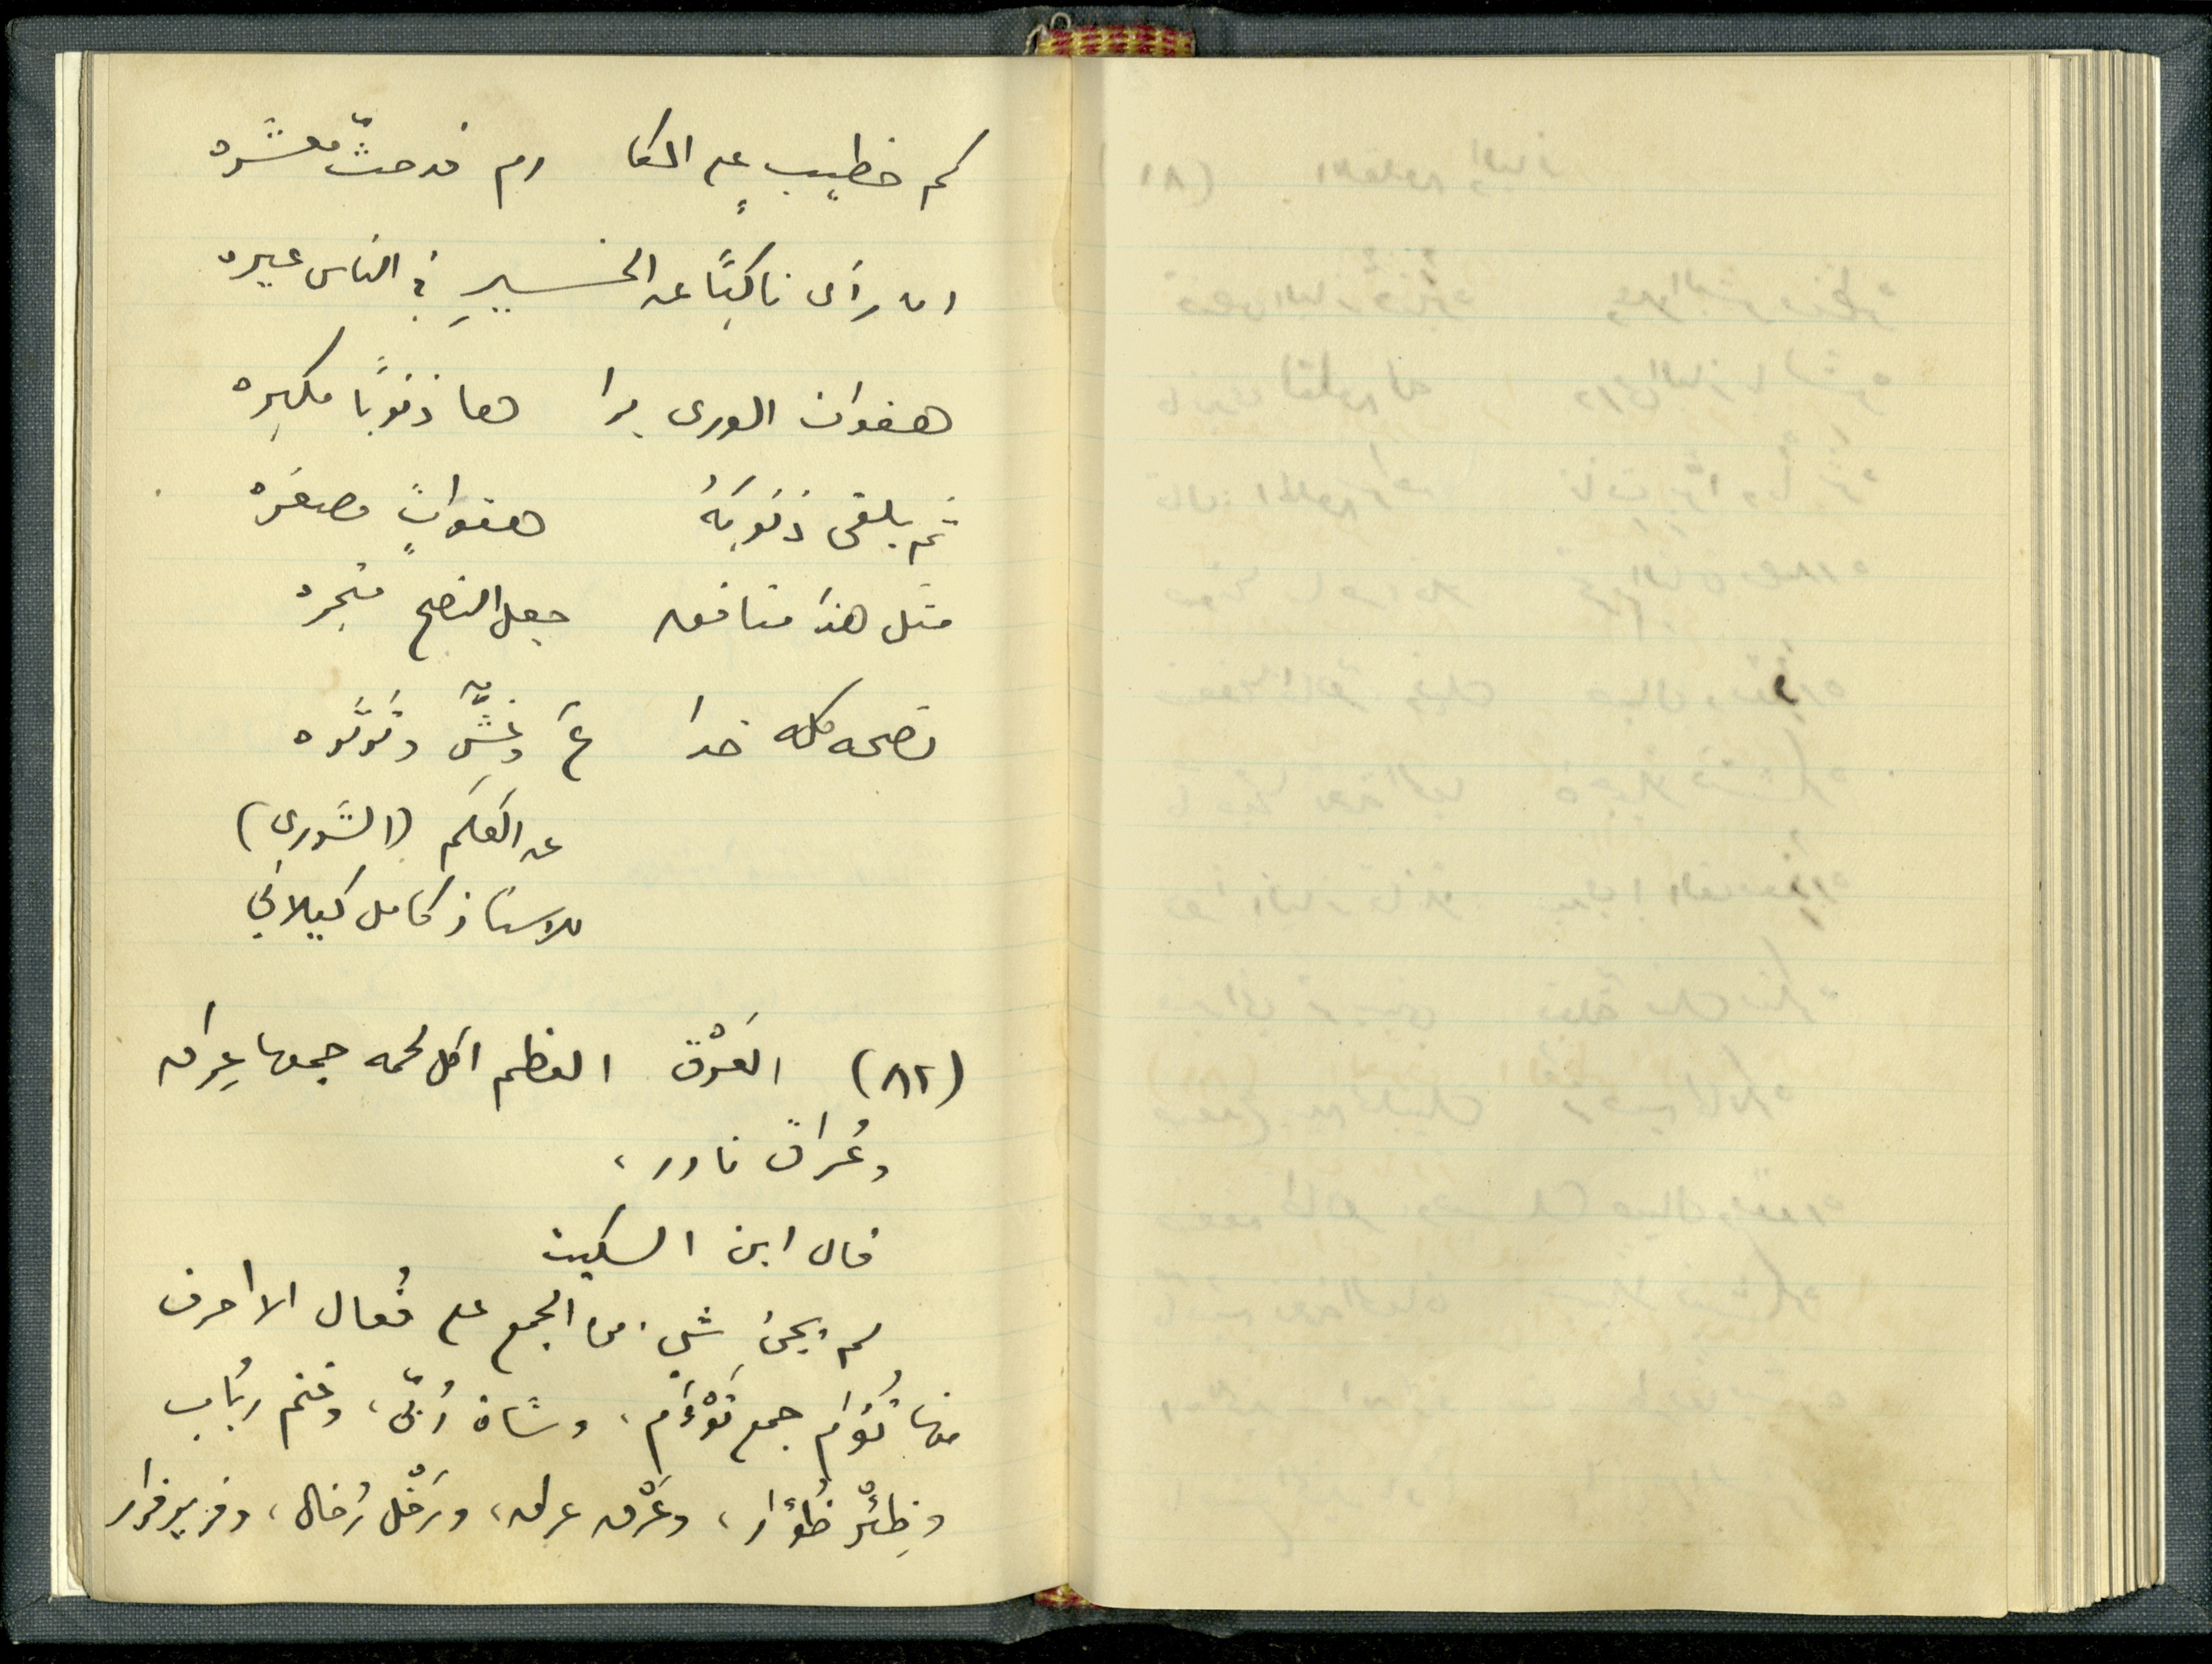 كم خطيب على المكا رم قد حثّ معشَره
ان رأى ناكبًا عن الخـــيرِ في الناس عيره
هفوات الورى يرا ها ذنوبًا مكبره
ثم يلقى ذنوبَهُ هفواتٍ مصغَره
مثل هذا منافق جعل النصح متجره
نصحه كله خدا عٌ وغِشٌّ وثرثره
عن العَلَم (الشورى)
للاستاذ كامل كيلاني
(٨٢) العَرْق العظم اكل لحمه جمعها عِراق
وعُراق نادر،
قال ابن السكيت
لم يجئ شيء من الجمع على فُعال الا احرف
منها تُؤام جمع تَوْءَم، وشاة رُبّى، وغنم رُباب
وظِئْر ظُؤار، وعَرْق عراق، ورَخْل رُخال، وفرير فرار